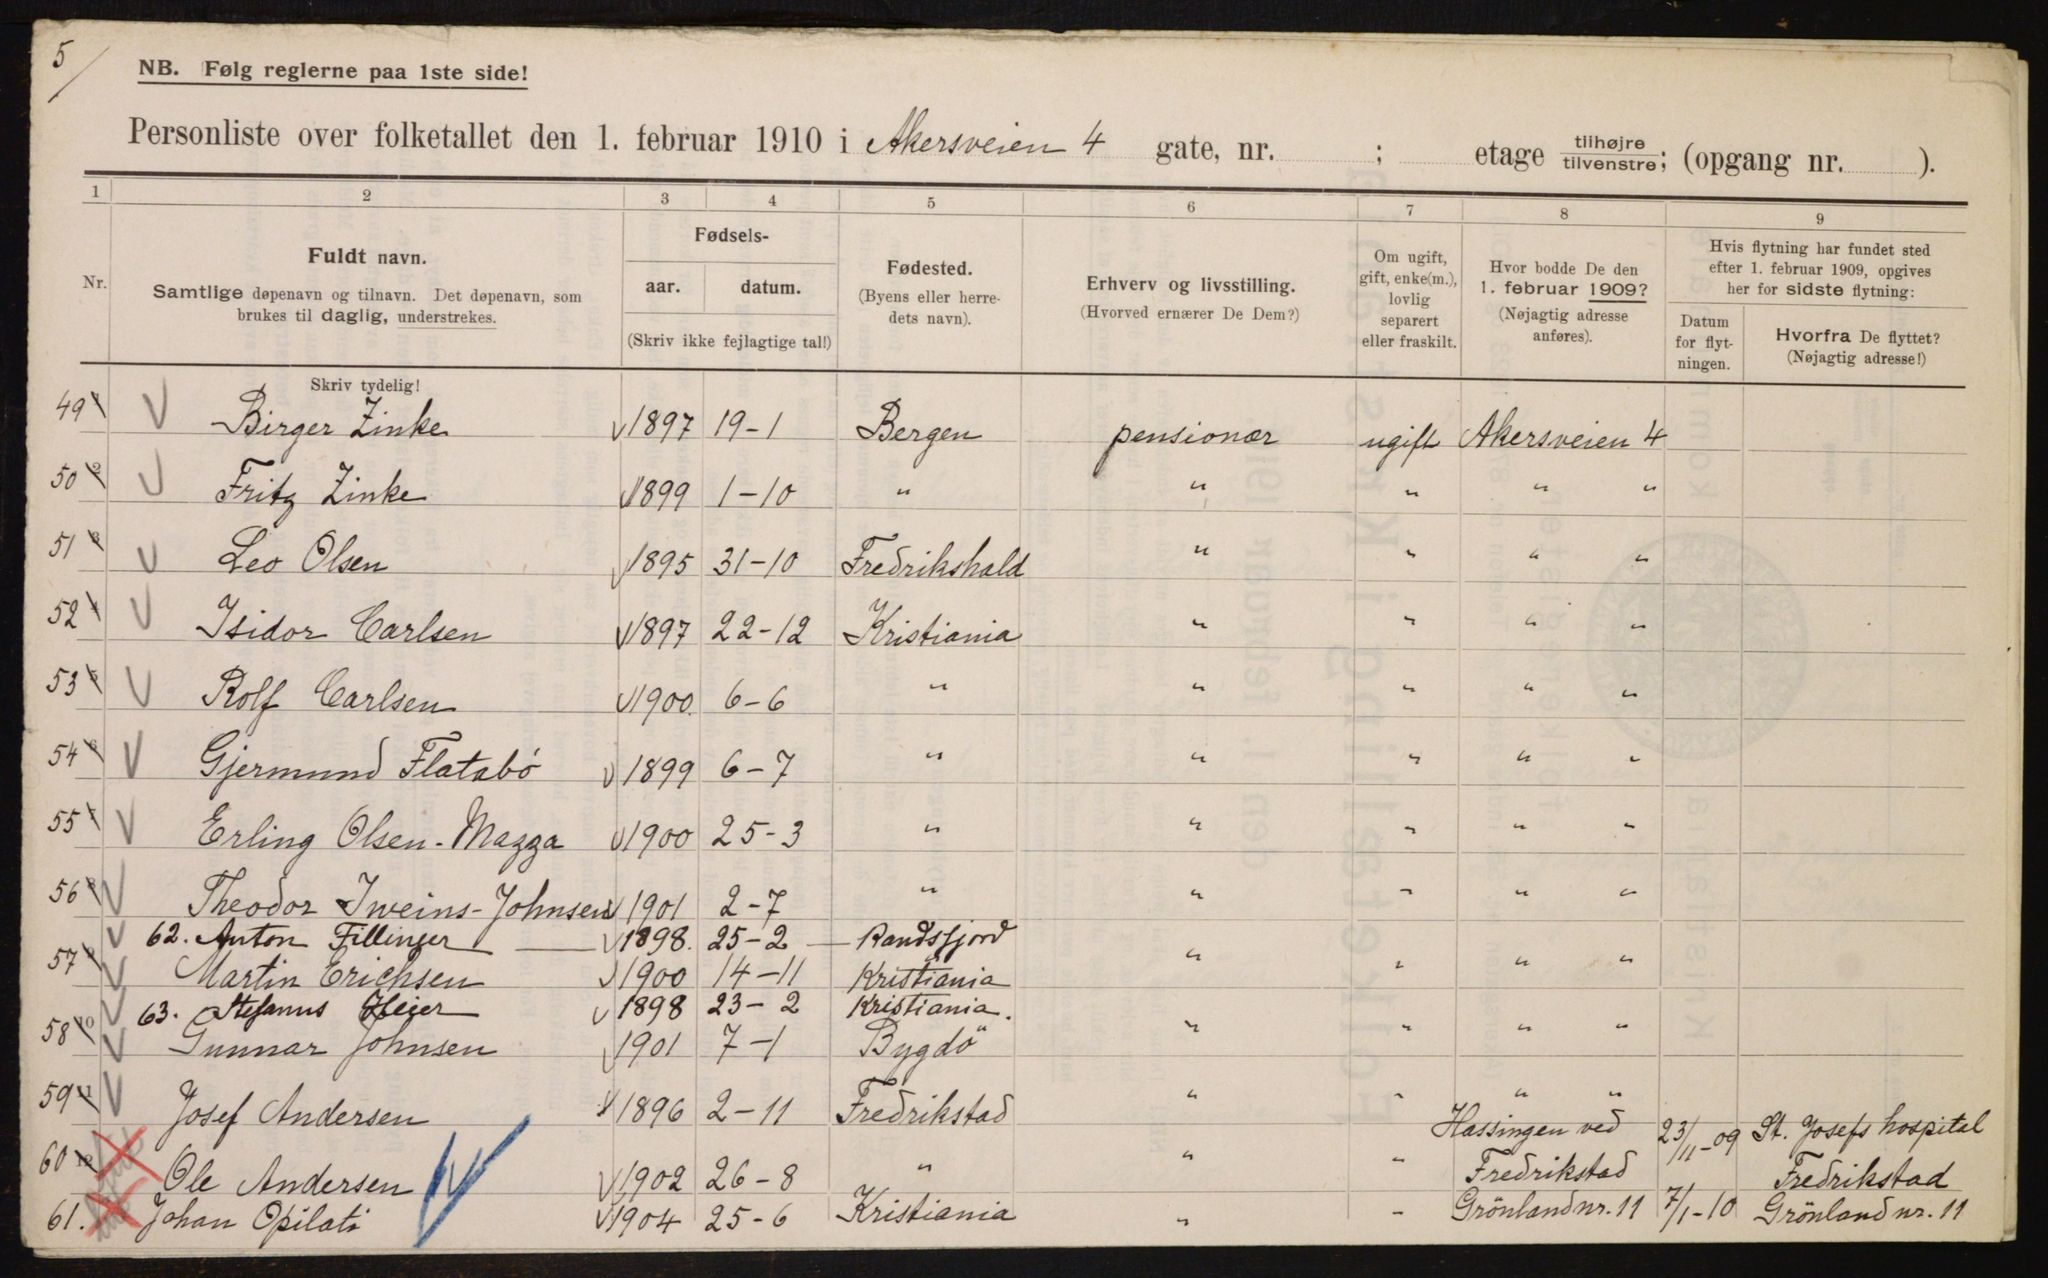 5
NB. Følg reglerne paa 1ste side!
Personliste over folketallet den 1. februar 1910 i Akersveien 4 gate, nr. ; etage tilhøjre tilvenstre; (opgang nr. ).
1 2 3 4 5 6 7 8 9
Nr.
Fuldt navn.
Samtlige døpenavn og tilnavn. Det døpenavn, som
brukes til daglig, understrekes.
Skriv tydelig!
Fødsels-
aar. datum.
(Skriv ikke fejlagtige tal!)
Fødested.
(Byens eller herre-
dets navn).
Erhverv og livsstilling.
(Hvorved ernærer De Dem?)
Om ugift,
gift, enke(m.),
lovlig
separert
eller fraskilt.
Hvor bodde De den
1. februar 1909?
(Nøjagtig adresse
anføres).
Hvis flytning har fundet sted
efter 1. februar 1909, opgives
her for sidste flytning:
Datum
for flyt-
ningen.
Hvorfra De flyttet?
(Nøjagtig adresse!)
49 Birger Zinke 1897 19-1 Bergen pensionær ugift Akersveien 4
50 Fritz Zinke 1899 1-10 " " " " "
51 Leo Olsen 1895 31-10 Fredrikshald " " " "
52 Isidor Carlsen 1897 22-12 Kristiania " " " "
53 Rolf Carlsen 1900. 6-6 " " " " "
54 Gjermund Flatabö 1899 6-7 " " " " "
55 Erling Olsen-Mazza 1900 25-3 " " " " "
56 Theodor Iweins-Johnsen 1901 2-7 " " " " "
62. Anton Fillinger 1898. 25-2 Randsfjord
57 Martin Erichsen 1900 14-11 Kristiania " " " "
63. Stefanus Heier 1898 23-2 Kristiania.
58 Gunnar Johnsen 1901 7-1 Bygdö " " " "
59 Josef Andersen 1896 2-11 Fredrikstad " " " "
60 Ole Andersen 1902 26-8 " " " Hassingen ved Fredrikstad 23/11-09 St. Josefs hospital Fredrikstad
61. Johan Opilati 1904 25-6 Kristiania " " Grönland nr. 11 7/1-10 Grönland nr. 11